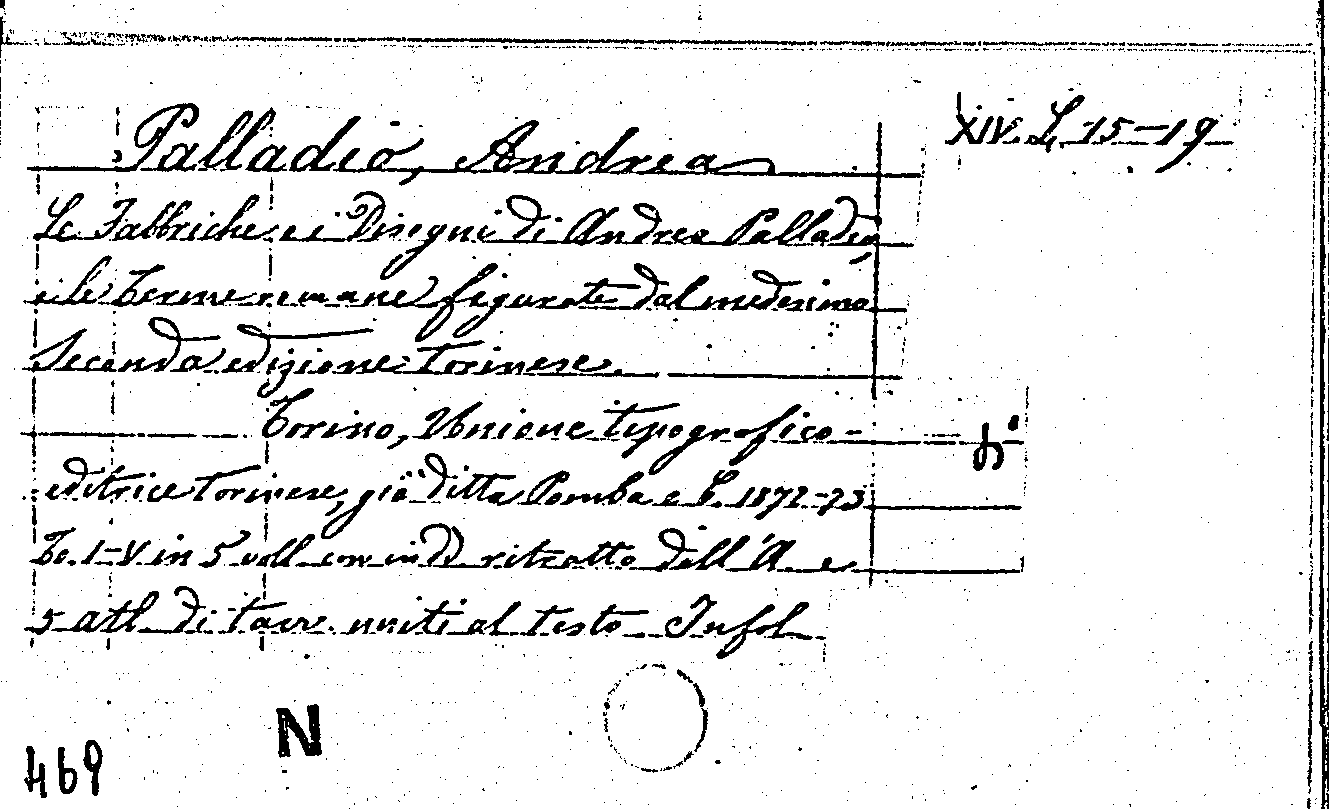 XIV. L. 15-19
Palladio, Andrea
Le Fabbriche e i Disegni di Andrea Palladio,
e le Terme romane figurate dal medesimo
Seconda edizione torinese.
Torino, Unione tipografico-
editrice torinese, già ditta Pomba e C. 1872-73
To. I-V in 5 voll. con ritratto dell'A. e
5 atl. di tavv. uniti al testo. Infol.
N
469